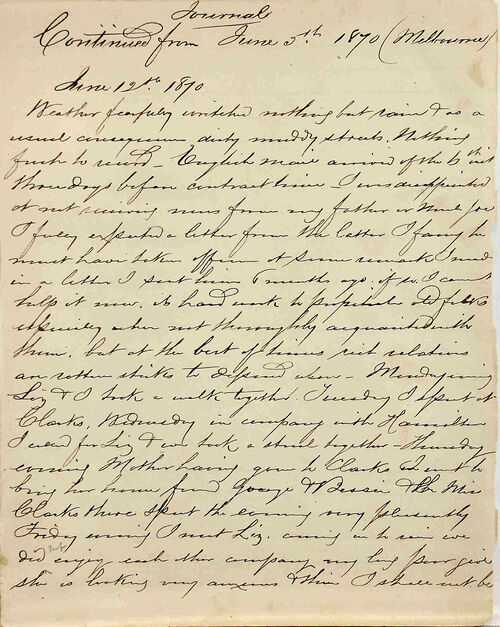 Journal
Continued from June 5th 1870 (Melbourne)
June 12th 1870
Weather fearfully wretched nothing but rain & as a
usual consequence dirty muddy streets. Nothing
fresh to record – English mail arrived of the 6th inst
three days before contract time – I was disappointed
at not receiving news from my father or Uncle Joe
I fully expected a letter from the latter I fancy he
must have taken offence at some remark I made
in a letter I sent him 6 months ago, if so, I can't
help it now, its hard work to propitiate old folks
especially when not thoroughly acquainted with
them, but at the best of times rich relations
are rotten sticks to depend upon – Monday evening
Liz & I took a walk together. Tuesday I spent at
Clarks, Wednesday in company with Hamilton
I called for Liz & we took a stroll together – Thursday
evening Mother having gone to Clarks I went to
bring her home found George & Bessie & Mr Mrs
Clarks there spent the evening very pleasantly
Friday evening I met Liz. owing to the rain we
did not enjoy each other company my Liz poor girl
she is looking very anxious & thin I shall not be